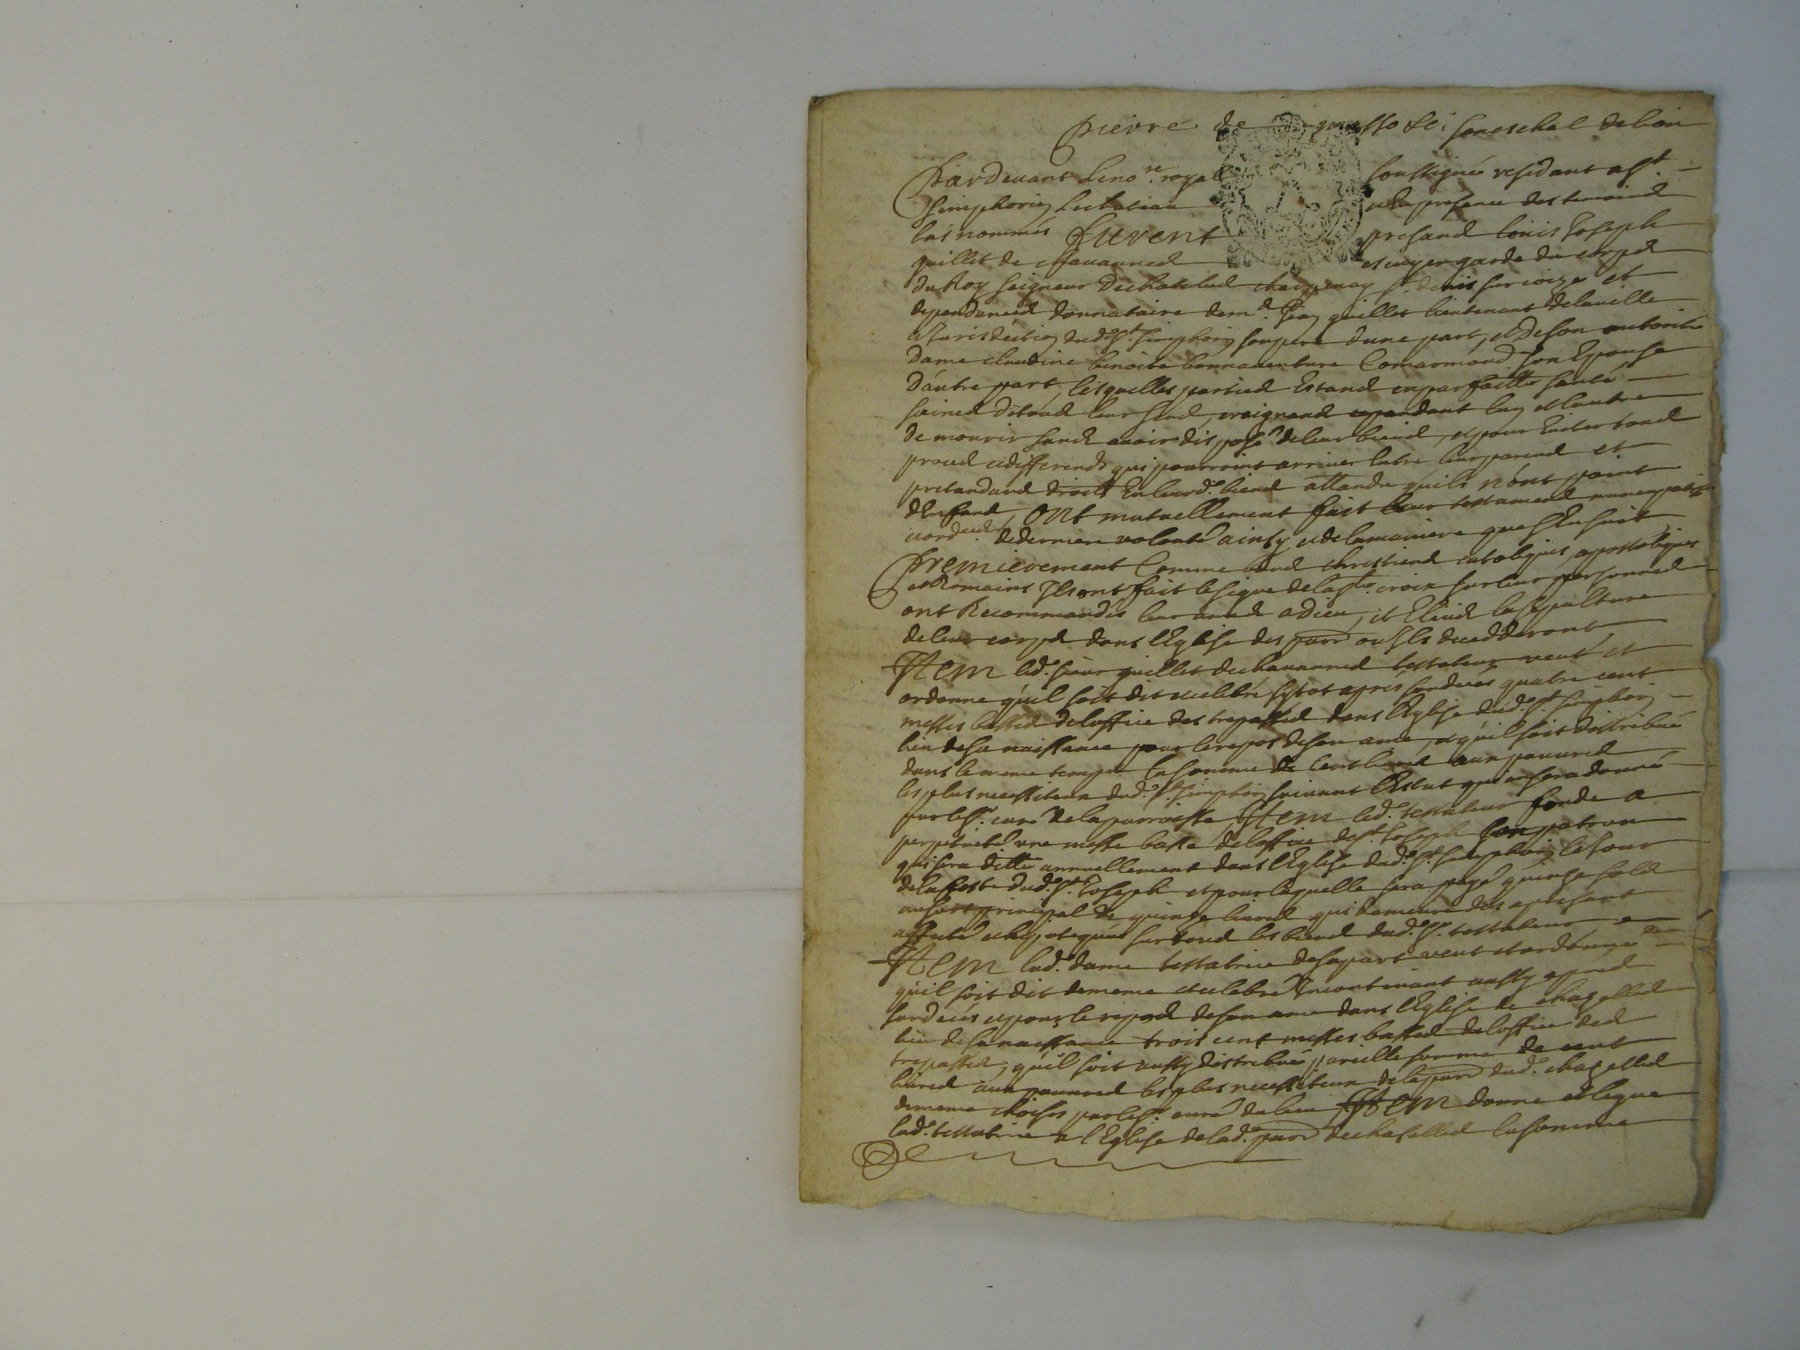 Pierre de seneschal de lion
Pardevant le no.re royal soussigné residant a St.
Simphorien le chateau et en presence des temoins
bas nommés furent presand Louis Joseph
guillet de chavannes escuyer garde du corps
du Roy seigneur de chatelud chavagnay St. denis sur coize et
dependances donnataire de md. Jean guillet lieutenant de la ville
et Jurisdiction dud. St. simphorien son pere d'une part, et de son authorité
Dame claudine benoite bonnaventure Comarmond son Epouse
D'autre part, lesquelles parties Estand en parfaitte santé
saines de toud leur send, craignand cependant l'un et l'autre
de mourir sand avoir disposé de leur biend, et pour Eviter toud
proced et differends qui pourroint arriver Entre leur parend et
pretandand droits En leurd. biend attandu qu'ils n'ont point
d'Enfand, ONt mutuellement fait leur testament
de derniere volonté ainsy et de la maniere que s'Ensuit
Premierement Comme bond christiend catoliques, apostoliques
et Romains Ils ont fait le signe de la ste. croix sur leur personned
ont Recommandés leur amed a dieu, et Elisid la sepulture
de leur corps dans l'Eglise des parr. ou Ils decedderont,
Item led. sieur guillet de chavanned testateur veut et
ordonne qu'il soit dit et celebré sytot aprés son decés quatre cent
messes basses de l'office des trepassed dans l'Eglise dud. St. simphorien
lieu de sa naissance pour le repos de son ame, et qu'il soit distribué
dans le meme temps la somme de Cent livres aux pauvred
les plus necessiteux dud. St. Simphorien suivant l'Estat qui en sera donné
par le sr. curé de la parroisse Item led. testateur fonde a
perpetuité une messe basse de l'office de st. Joseph son patron
qui sera ditte annuellement dans l'Eglise dud. St. Simphorien le Jour
de la feste dud. St. Joseph et pour laquelle sera payé quinze sold
au sort principal de quinze livred qui demeure dés a present
affecté et hypotequée sur toud les biend dud. sr. testateur
Item lad. dame testatrice de sa part veut et ordonne
qu'il soit dit de meme et celebré Incontinant aussy apred
son decés et pour le repod de son ame dans l'Eglise de chazelled
lieu de sa naissance trois cent messes bassed de l'office ded
trepassed, qu'il soit aussy distribué pareille somme de cent
livred aux pauvred les plus necessiteux de la parr. dud. chazelled
de meme choisis par le sr. curé du lieu, Item donne et legue
lad. testatrice a l'Eglise de lad. parr. de chaselled la somme